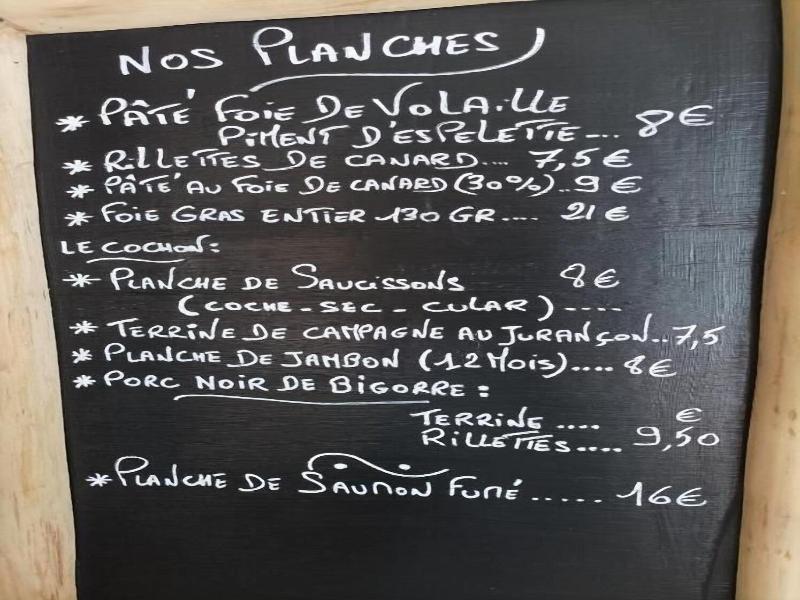 NOS PLANCHES
* PÂTÉ FOIE DE VOLAILLE
PIMENT D'ESPELETTE... 8€
* RILLETTES DE CANARD.... 7,5€
* PÂTÉ AU FOIE DE CANARD (30%).. 9€
* FOIE GRAS ENTIER 130 GR.... 21€
LE COCHON:
* PLANCHE DE SAUCISSONS 8€
(COCHE - SEC - CULAR) ....
* TERRINE DE CAMPAGNE AU JURANÇON.. 7,5
* PLANCHE DE JAMBON (12 MOIS).... 8€
* PORC NOIR DE BIGORRE:
TERRINE .... €
RILLETTES.... 9,50
* PLANCHE DE SAUMON FUMÉ ...... 16€